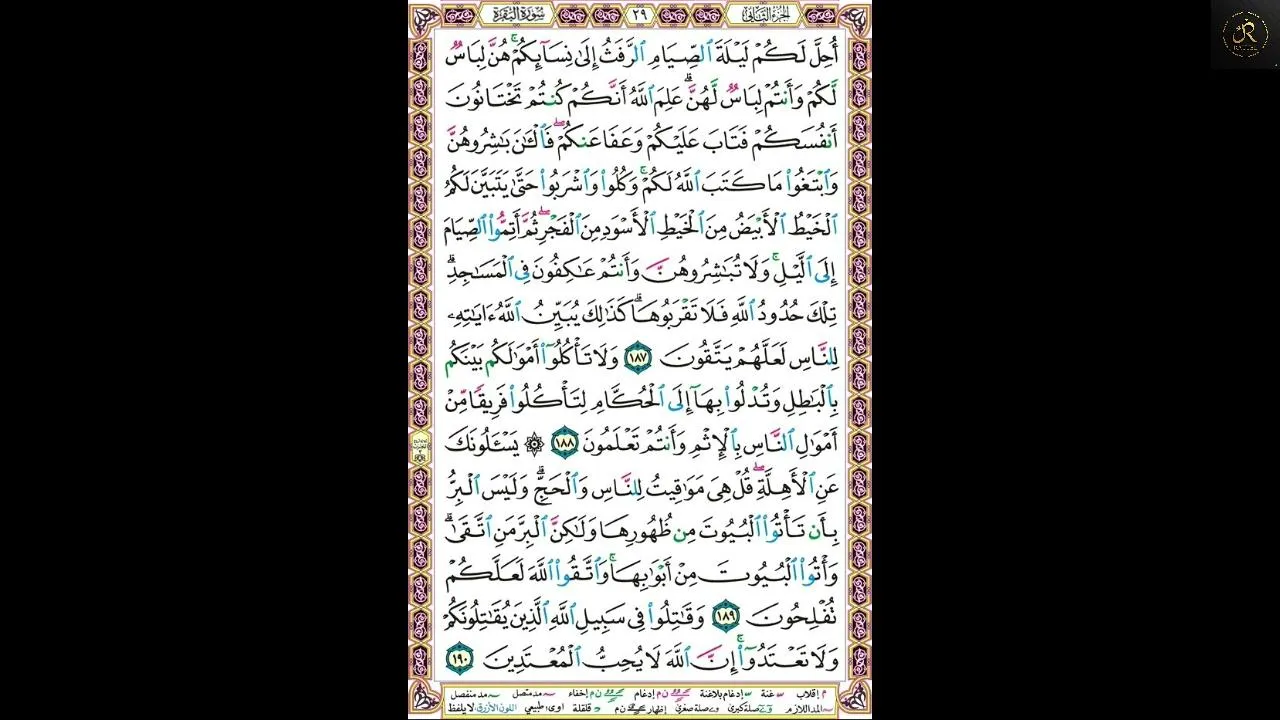 الجزء الثاني ٢٩ سورة البقرة
أُحِلَّ لَكُمْ لَيْلَةَ ٱلصِّيَامِ ٱلرَّفَثُ إِلَىٰ نِسَآئِكُمْ ۚ هُنَّ لِبَاسٌ
لَّكُمْ وَأَنتُمْ لِبَاسٌ لَّهُنَّ ۗ عَلِمَ ٱللَّهُ أَنَّكُمْ كُنتُمْ تَخْتَانُونَ
أَنفُسَكُمْ فَتَابَ عَلَيْكُمْ وَعَفَا عَنكُمْ ۖ فَٱلْـَٰٔنَ بَـٰشِرُوهُنَّ
وَٱبْتَغُوا۟ مَا كَتَبَ ٱللَّهُ لَكُمْ ۚ وَكُلُوا۟ وَٱشْرَبُوا۟ حَتَّىٰ يَتَبَيَّنَ لَكُمُ
ٱلْخَيْطُ ٱلْأَبْيَضُ مِنَ ٱلْخَيْطِ ٱلْأَسْوَدِ مِنَ ٱلْفَجْرِ ۖ ثُمَّ أَتِمُّوا۟ ٱلصِّيَامَ
إِلَى ٱلَّيْلِ ۚ وَلَا تُبَـٰشِرُوهُنَّ وَأَنتُمْ عَـٰكِفُونَ فِى ٱلْمَسَـٰجِدِ ۗ
تِلْكَ حُدُودُ ٱللَّهِ فَلَا تَقْرَبُوهَا ۗ كَذَٰلِكَ يُبَيِّنُ ٱللَّهُ ءَايَـٰتِهِۦ
لِلنَّاسِ لَعَلَّهُمْ يَتَّقُونَ ١٨٧ وَلَا تَأْكُلُوٓا۟ أَمْوَٰلَكُم بَيْنَكُم
بِٱلْبَـٰطِلِ وَتُدْلُوا۟ بِهَآ إِلَى ٱلْحُكَّامِ لِتَأْكُلُوا۟ فَرِيقًا مِّنْ
أَمْوَٰلِ ٱلنَّاسِ بِٱلْإِثْمِ وَأَنتُمْ تَعْلَمُونَ ١٨٨ ۞ يَسْـَٔلُونَكَ
عَنِ ٱلْأَهِلَّةِ ۖ قُلْ هِىَ مَوَٰقِيتُ لِلنَّاسِ وَٱلْحَجِّ ۗ وَلَيْسَ ٱلْبِرُّ
بِأَن تَأْتُوا۟ ٱلْبُيُوتَ مِن ظُهُورِهَا وَلَـٰكِنَّ ٱلْبِرَّ مَنِ ٱتَّقَىٰ ۗ
وَأْتُوا۟ ٱلْبُيُوتَ مِنْ أَبْوَٰبِهَا ۚ وَٱتَّقُوا۟ ٱللَّهَ لَعَلَّكُمْ
تُفْلِحُونَ ١٨٩ وَقَـٰتِلُوا۟ فِى سَبِيلِ ٱللَّهِ ٱلَّذِينَ يُقَـٰتِلُونَكُمْ
وَلَا تَعْتَدُوٓا۟ ۚ إِنَّ ٱللَّهَ لَا يُحِبُّ ٱلْمُعْتَدِينَ ١٩٠
م إقلاب غنة إدغام بلاغنة ن م إدغام ن م إخفاء مد متصل مد منفصل
المد اللازم صلة كبرى صلة صغرى إظهار ن م قلقلة اوى: طبيعي اللون الأزرق لا يلفظ